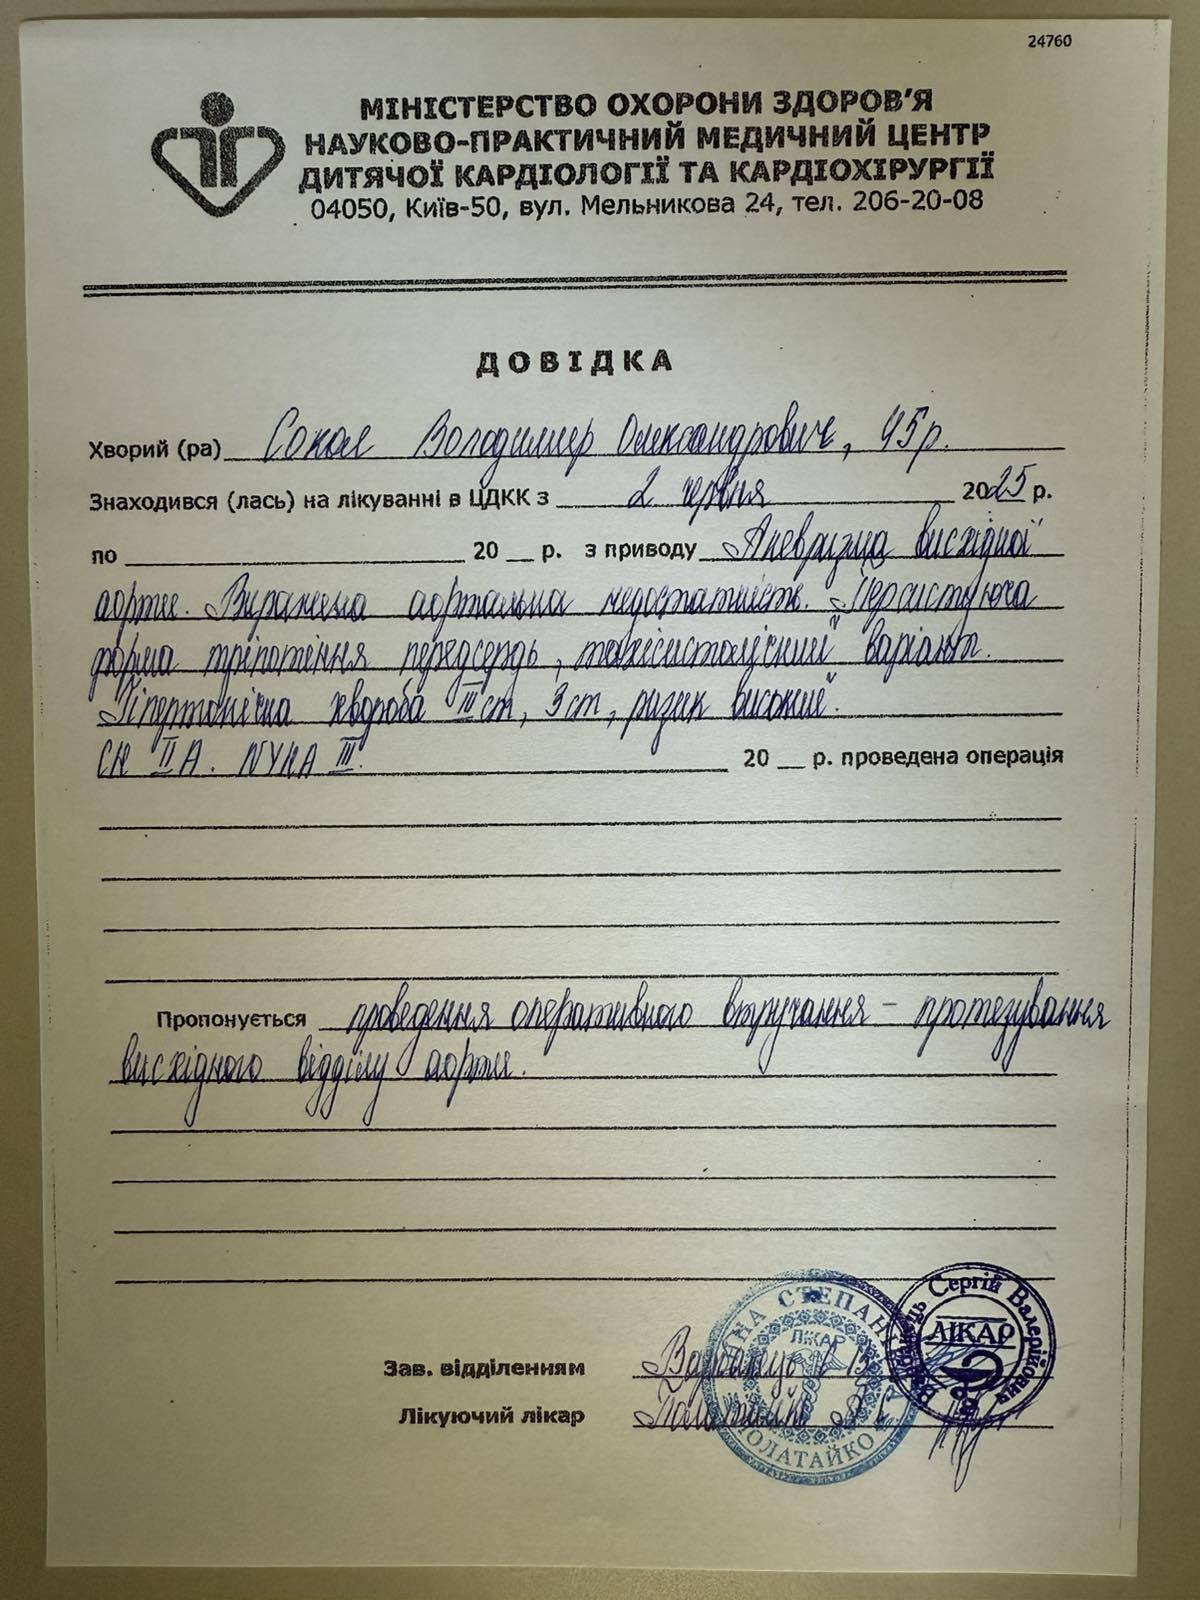 24760
МІНІСТЕРСТВО ОХОРОНИ ЗДОРОВ'Я
НАУКОВО-ПРАКТИЧНИЙ МЕДИЧНИЙ ЦЕНТР
ДИТЯЧОЇ КАРДІОЛОГІЇ ТА КАРДІОХІРУРГІЇ
04050, Київ-50, вул. Мельникова 24, тел. 206-20-08
ДОВІДКА
Хворий (ра) Сокол Володимир Олександрович, 45р.
Знаходився (лась) на лікуванні в ЦДКК з 2 червня 2025 р.
по 20 __ р. з приводу Аневризма висхідної
аорти. Виражена аортальна недостатність. Персистуюча
форма тріпотіння передсердь, тахісистолічний варіант.
Гіпертонічна хвороба III ст, 3 ст, ризик високий.
СН II А. NYHA III. 20 __ р. проведена операція
Пропонується проведення оперативного втручання - протезування
висхідного відділу аорти.
Зав. відділенням
Лікуючий лікар
СТЕПАН
ЛІКАР
ПОЛАТАЙКО
Сергій Валерійович
ЛІКАР